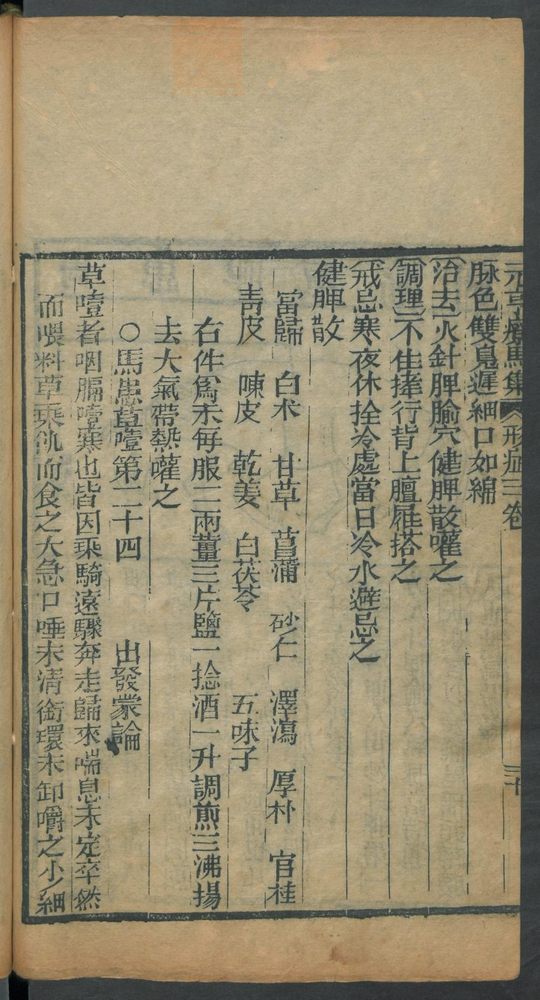 元亨療馬集 形症三卷 三十
脉色雙鳬遲細口如綿
治法火針脾腧穴健脾散嚾之
調理不住捧行背上膻屜搭之
戒忌寒夜休拴冷處當日冷水避忌之
健脾散
當歸 白术 甘草 菖蒲 砂仁 澤瀉 厚朴 官桂
青皮 陳皮 乾姜 白茯苓 五味子
右件爲末每服二兩薑三片鹽一捻酒一升調煎三沸揚
去大氣帶熱嚾之
〇馬患草噎第二十四 出發蒙論
草噎者咽膈噎寒也皆因乘騎遠驟奔走歸來喘息未定卒然
而喂料草乘飢而食之大急口唾未清銜環未卸嚼之少細